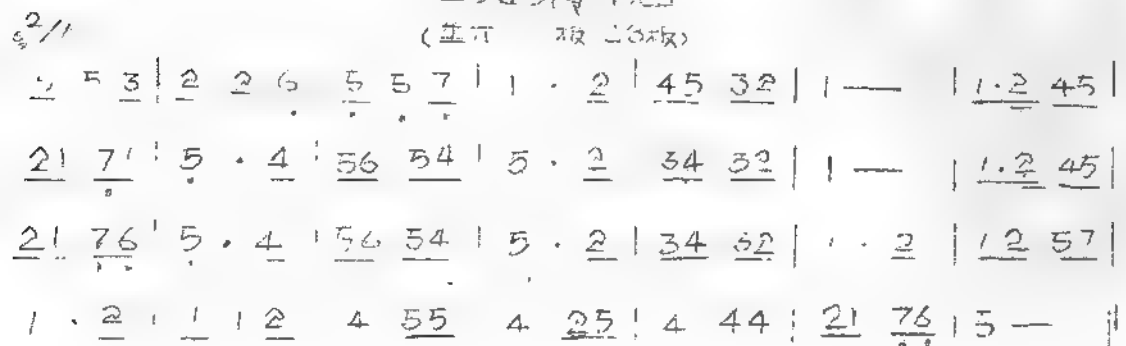 5 5 3 | 2 2 6 5 5 7 | 1 · 2 | 45 32 | 1 — | 1·2 45 |
21 71 | 5 · 4 | 56 54 | 5 · 2 34 32 | 1 — | 1·2 45 |
21 76 | 5 · 4 | 56 54 | 5 · 2 | 34 32 | 1 · 2 | 12 57 |
1 · 2 | 1 1 2 4 55 4 25 | 4 44 | 21 76 | 5 — ||